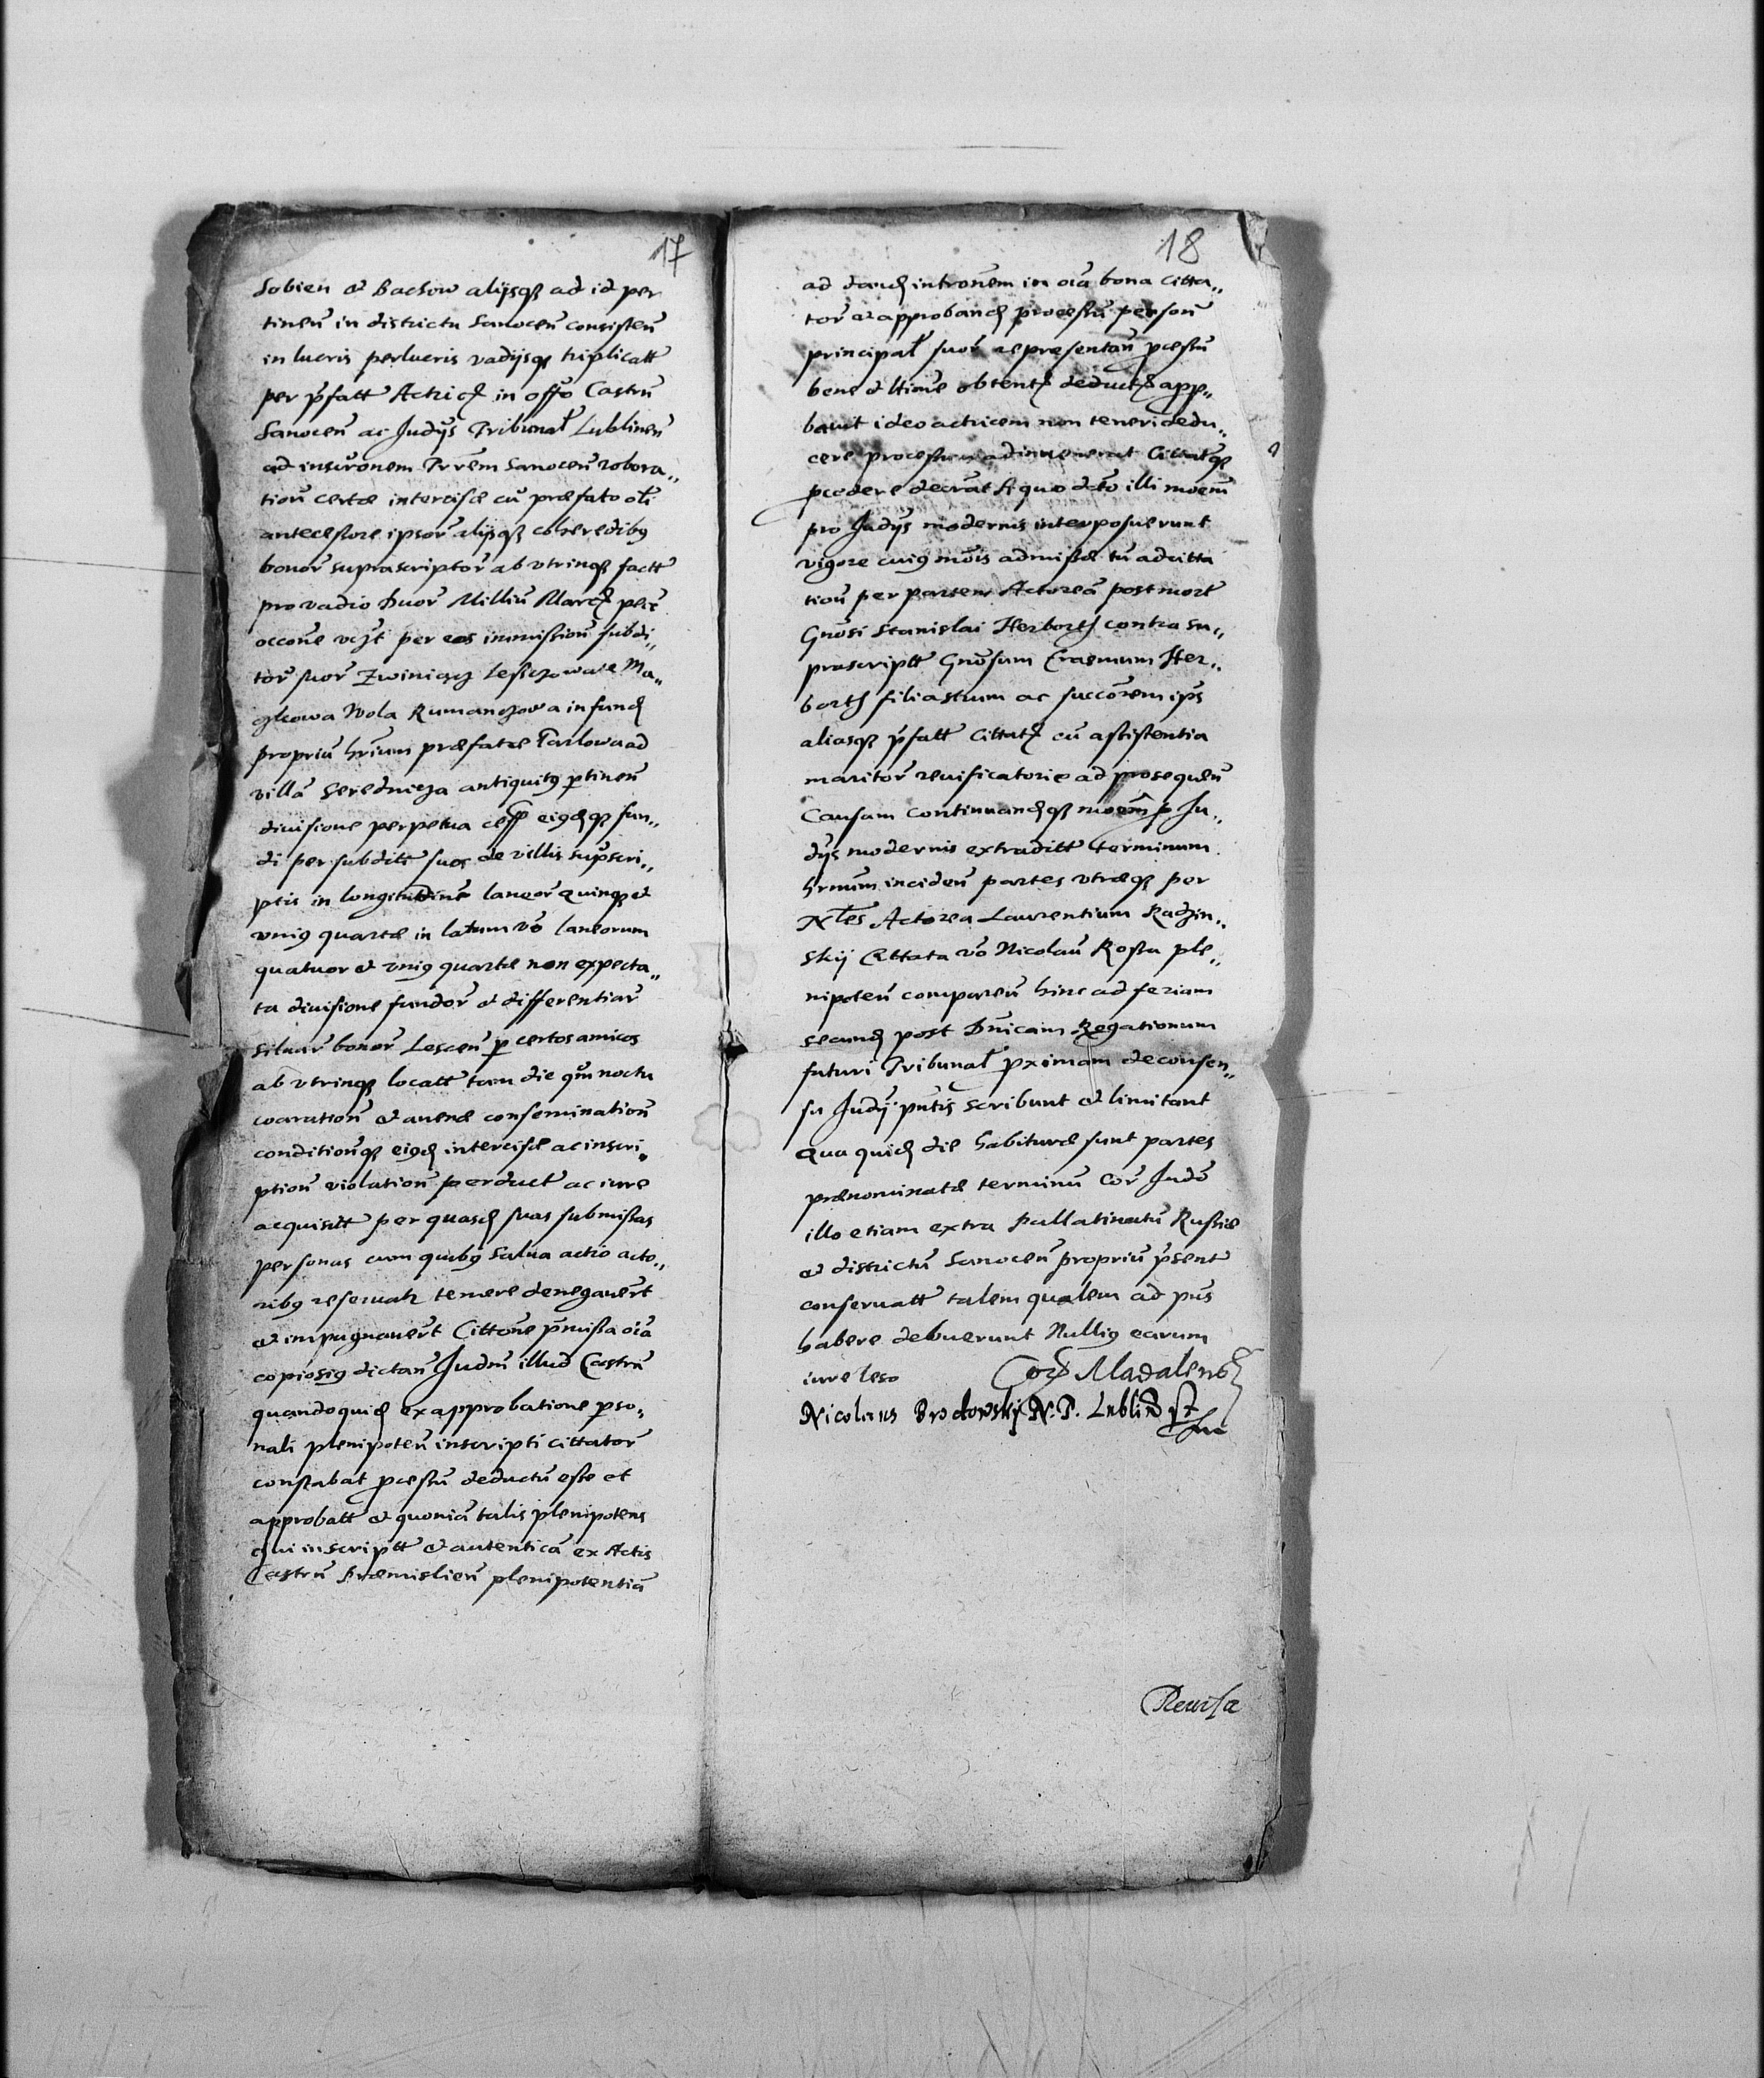 17
Sobien et Bachow alijsq̃ ad id per
tineñ in districtu Sanoceñ consisteñ
in lucris perlucris vadijsq̃ triplicatt
per p̃fatt Actric̃ in offo Castrñ
Sanoceñ ac Judijs Tribunal̃ Lublineñ
ad inscr̃onem Trr̃em Sanoceñ robora„
tioñ certæ intercisæ cũ præfato oli
antecessore ipsor̃ alijsq̃ coheredibg
bonor̃ suprascriptor̃ ab vtrinq̃ factt
pro vadio Duor̃ Milliũ Marc̃
occone per eos immissioñ subdi„
tor̃ suor̃ Zwiniacz Lesczowate Ma„
czkowa Wola Rumanczowa in fund̃
propriũ hr̃ium præfatæ Tarlowa ad
villã Serednicza antiquitg p̃tineñ
diuisione perpetua cess̃ eigd̃q̃ fun„
di per subditt suos de villis sup̃scri„
ptis in longitudine laneor̃ quinq̃ et
vnig quartæ in latum ṽo laneorum
quatuor et vnig quartæ non expecta„
ta diuisione fundor̃ et differentiar̃
bonor̃ Lesceñ p̃ certos amicos
ab vtrinq̃ locatt tam die qm̃ noctu
coarationẽ et auenæ conseminationẽ
conditionẽq̃ eigd̃ intercisæ ac inscri„
ptioñ violationẽ perduct ac iure
acquisitt per quasd̃ suas submissas
personas cum quibg salua actio acto„
ribg reseruatr temere denegauer̃t
et impugnauer̃t Cittõne p̃missa oĩa
copiosig dictañ Judm̃ illud Castrñ
quandoquid̃ ex approbatione p̃so„
nali plenipoteñ inscripti cittator̃
constabat p̃cessũ deductũ esse et
approbatt et quoniã talis plenipotens
qui inscriptt et autenticã ex Actis
Castrñ Præmislieñ plenipotentiã
18
ad dand̃ intronem in oĩa bona Citta„
tor̃ et approband̃ processũ persoñ
principal̃ suor̃ representañ p̃cessũ
bene et ltime obtent̃ deduct̃ app„
bauit ideo actricem non teneri dedu„
cere processum adinuenerat Cittatq̃
p̃cedere decrãt A quo d̃to illi moem̃
pro Judijs modernis interposuerunt
vigore cuig mõis admissæ tũ adcitta
tioñ per partem Actoreã post mort̃
Gnõsi Stanislai Herborth contra su„
prascriptt Gnõsum Erasmum Her„
borth filiastrum ac succõrem ip̃s
aliasq̃ p̃fatt Cittat̃ cũ assistentia
maritor̃ reuificatorie ad prosequeñ
Causam continuand̃q̃ moem̃ p̃ Ju„
dijs modernis extraditt terminum
hrnũm incideñ partes vtræq̃ per
Nl̃es Actorea Laurentium Radzin„
skij Cittata ṽo Nicolaũ Rossu ple„
nipoteñ compareñ hinc ad feriam
secund̃ post Dñicam Rogationum
futuri Tribunal̃ p̃ximam de consen„
su Judij p̃ntis scribunt et limitant
Qua quid̃ die habituræ sunt partes
prænominatæ terminũ Cor̃ Judõ
illo etiam extra pallatinatũ Russiæ
et districtũ Sanoceñ propriũ p̃sent
conseruatt talem qualem ad p̃ns
habere debuerunt Nullig earum
iure leso
Corr̃ Madalensk̃
Nicolaus Brodowskij N. T. Lublin̄ st
Reuisa